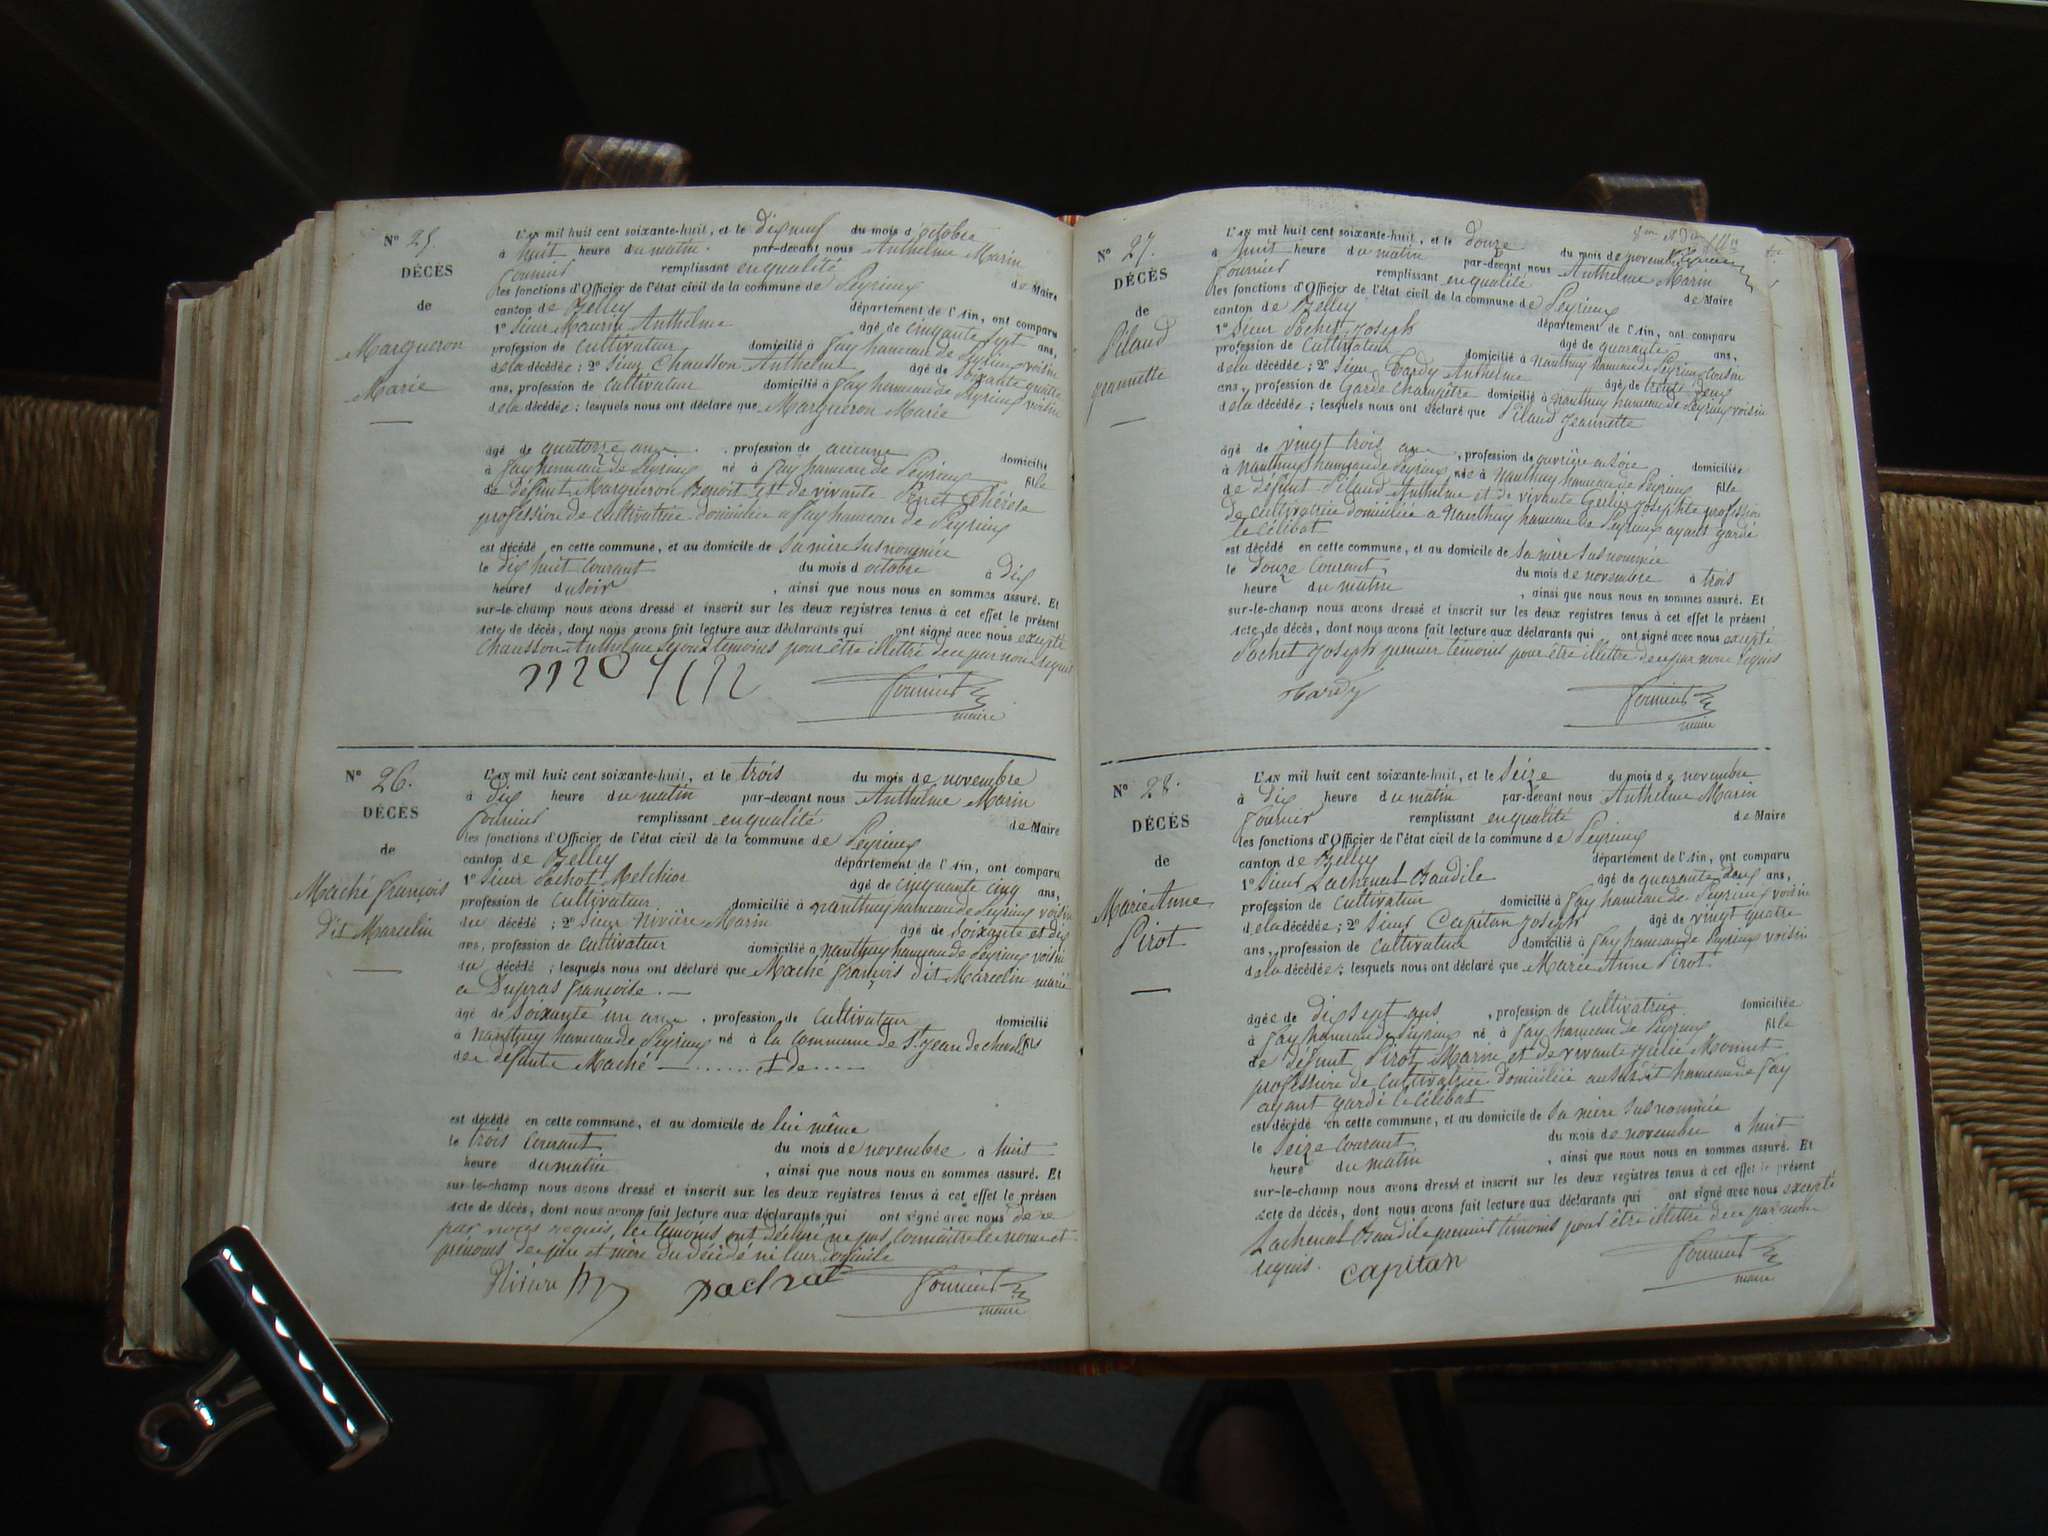 N° 25.
DÉCÈS
de
Margueron
Marie
L'AN mil huit cent soixante-huit, et le dix neuf du mois d'octobre
à huit heure du matin. par-devant nous Anthelme Marin
Fournier remplissant en qualité de Maire
les fonctions d'Officier de l'état civil de la commune de Peyrieux
canton de Belley département de l'Ain, ont comparu
1° Sieur Maurin Anthelme âgé de cinquante sept ans,
profession de cultivateur domicilié à Fay hameau de Peyrieux voisin
de la décédée ; 2° Sieur Chausson Anthelme âgé de soixante quatre
ans, profession de cultivateur domicilié à Fay hameau de Peyrieux voisin
de la décédée ; lesquels nous ont déclaré que Margueron Marie
âgé de quatorze ans . profession de aucune domicilié
à Fay hameau de Peyrieux né à Fay hameau de Peyrieux fille
de défunt Margueron Benoit et de vivante Thérèse
profession de cultivatrice domiciliée à Fay hameau de Peyrieux
est décédé en cette commune, et au domicile de sa mère susnommée
le dix huit courant du mois d'octobre à dix
heures du soir , ainsi que nous nous en sommes assuré. Et
sur-le-champ nous avons dressé et inscrit sur les deux registres tenus à cet effet le présent
acte de décès, dont nous avons fait lecture aux déclarants qui ont signé avec nous excepté
Chausson Anthelme second témoins pour être illettré de ce par nous requis
Fournier
maire
N° 26.
DÉCÈS
de
Maché François
Dit Marcelin
L'AN mil huit cent soixante-huit, et le trois du mois de novembre
à dix heure du matin par-devant nous Anthelme Marin
Fournier remplissant en qualité de Maire
les fonctions d'Officier de l'état civil de la commune de Peyrieux
canton de Belley département de l'Ain, ont comparu
1° Sieur Pochet Melchior âgé de cinquante cinq ans,
profession de cultivateur domicilié à Nanthuy hameau de Peyrieux voisin
du décédé ; 2° Sieur Nivière Marin âgé de soixante et dix
ans, profession de cultivateur domicilié à Nanthuy hameau de Peyrieux voisin
du décédé ; lesquels nous ont déclaré que Maché François dit Marcelin marié
a Dupras Françoise. —
âgé de soixante un ans . profession de cultivateur domicilié
à Nanthuy hameau de Peyrieux né à la commune de St. Jean de fils
de défunte Maché — ...... et de .....
est décédé en cette commune, et au domicile de lui même
le trois courant du mois de novembre à huit
heure du matin , ainsi que nous nous en sommes assuré. Et
sur-le-champ nous avons dressé et inscrit sur les deux registres tenus à cet effet le présen
acte de décès, dont nous avons fait lecture aux déclarants qui ont signé avec nous de ce
par nous requis, les témoins ont déclaré ne pas connaître les noms et
prénoms des père et mère du décédé ni leur domicile
Nivière pochet Fournier
maire
N° 27.
DÉCÈS
de
Pilaud
Jeannette
L'AN mil huit cent soixante-huit, et le douze du mois de novembre
à huit heure du matin par-devant nous Anthelme Marin
Fournier remplissant en qualité de Maire
les fonctions d'Officier de l'état civil de la commune de Peyrieux
canton de Belley département de l'Ain, ont comparu
1° Sieur Pochet Joseph âgé de quarante ans,
profession de cultivateur domicilié à Nanthuy hameau de Peyrieux voisin
de la décédée ; 2° Sieur Tardy Anthelme âgé de trente deux
ans, profession de Garde champêtre domicilié à Nanthuy hameau de Peyrieux voisin
de la décédée ; lesquels nous ont déclaré que Pilaud Jeannette
âgé de vingt trois ans , profession de ouvrière en soie domiciliée
à Nanthuy hameau de Peyrieux née à Nanthuy hameau de Peyrieux fille
de défunt Pilaud Anthelme et de vivante Josephte profession
de cultivatrice domiciliée à Nanthuy hameau de Peyrieux ayant gardé
le célibat
est décédé en cette commune, et au domicile de sa mère susnommée
le douze courant du mois de novembre à trois
heure du matin , ainsi que nous nous en sommes assuré. Et
sur-le-champ nous avons dressé et inscrit sur les deux registres tenus à cet effet le présent
acte de décès, dont nous avons fait lecture aux déclarants qui ont signé avec nous excepté
Pochet Joseph premier témoins pour être illettré de ce par nous requis
Tardy Fournier
maire
N° 28.
DÉCÈS
de
Marie Anne
Pirot
L'AN mil huit cent soixante-huit, et le seize du mois de novembre
à dix heure du matin par-devant nous Anthelme Marin
Fournier remplissant en qualité de Maire
les fonctions d'Officier de l'état civil de la commune de Peyrieux
canton de Belley département de l'Ain, ont comparu
1° Sieur Lachenal Baudile âgé de quarante deux ans,
profession de cultivateur domicilié à Fay hameau de Peyrieux voisin
de la décédée ; 2° Sieur Capitan Joseph âgé de vingt quatre
ans, profession de cultivateur domicilié à Fay hameau de Peyrieux voisin
de la décédée ; lesquels nous ont déclaré que Marie Anne Pirot
âgée de dix sept ans , profession de cultivatrice domiciliée
à Fay hameau de Peyrieux né à Fay hameau de Peyrieux fille
de défunt Pirot Marin et de vivante Julie Monnet
profession de cultivatrice domiciliée au susdit hameau de Fay
ayant gardé le célibat
est décédé en cette commune, et au domicile de sa mère susnommée
le seize courant du mois de novembre à huit
heure du matin , ainsi que nous nous en sommes assuré. Et
sur-le-champ nous avons dressé et inscrit sur les deux registres tenus à cet effet le présent
acte de décès, dont nous avons fait lecture aux déclarants qui ont signé avec nous excepté
Lachenal Baudile premier témoins pour être illettré de ce par nous
requis. capitan Fournier
maire